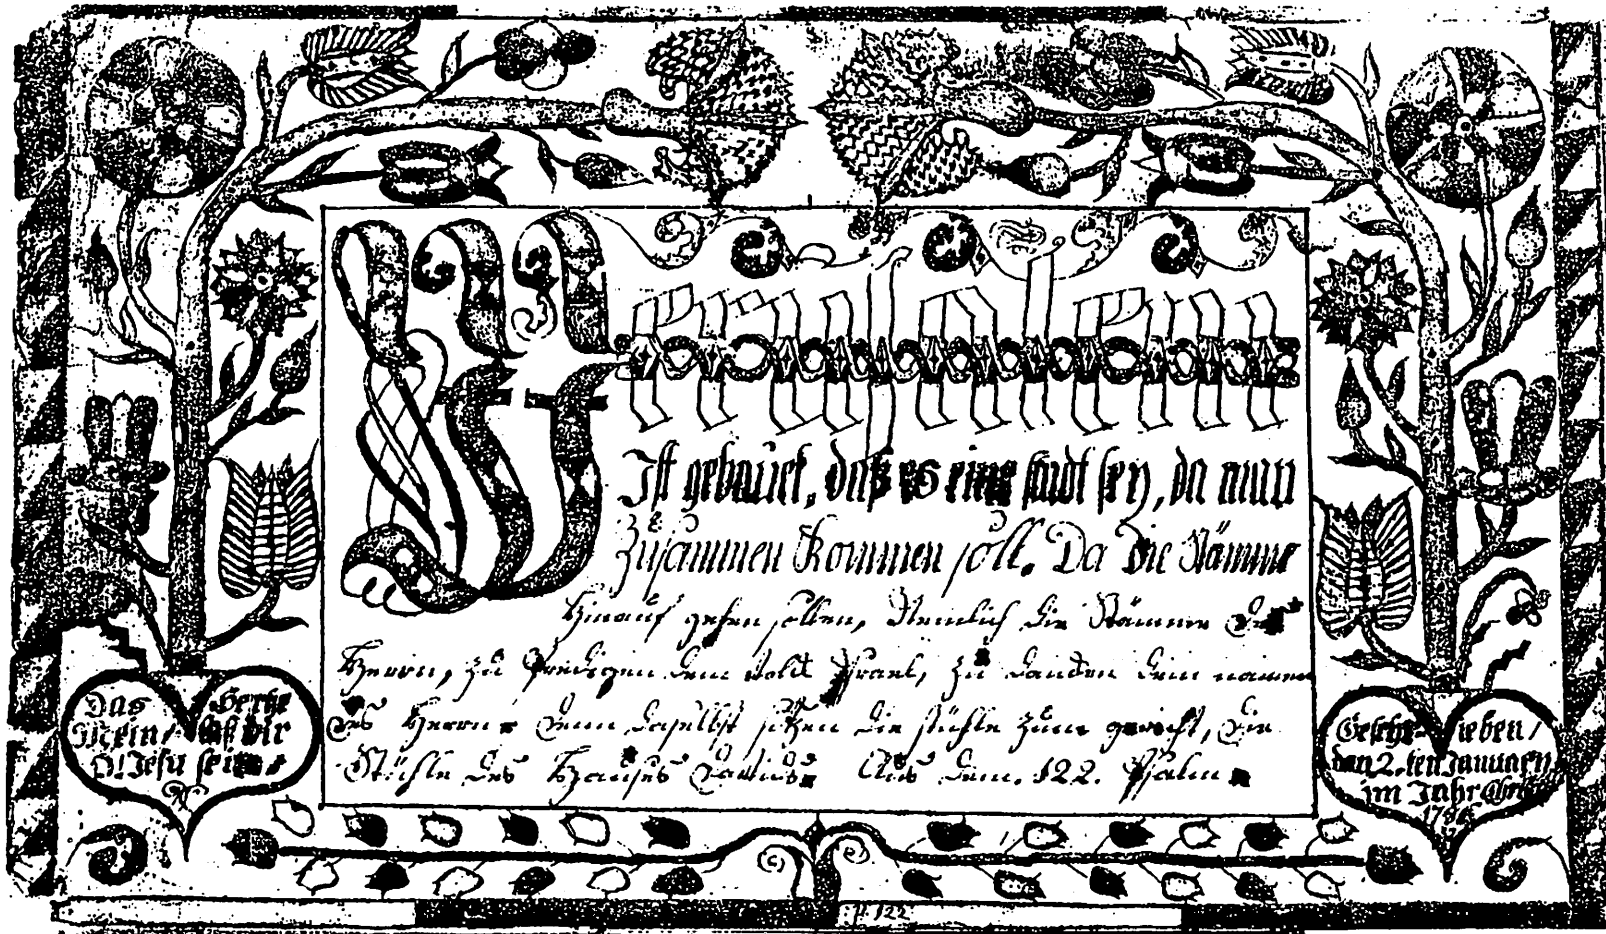 Jerusalem
Ist gebauet, daß es eine stadt sey, da man
Zusammen Kommen soll. Da die Stämme
Hinauf gehen sollen, Nemlich die Stämme des
Herrn, zu Predigen dem Volck Israel, zu dancken dem namen
des Herrn denn daselbst sitzen die stühle zum gericht, die
Stühle des Hauses Davids. Aus dem. 122. Psalm
Das Hertze
Mein / laß dir
O! Jesu sein
Geschrieben /
den 2.ten Januarij
im Jahr
p. 122